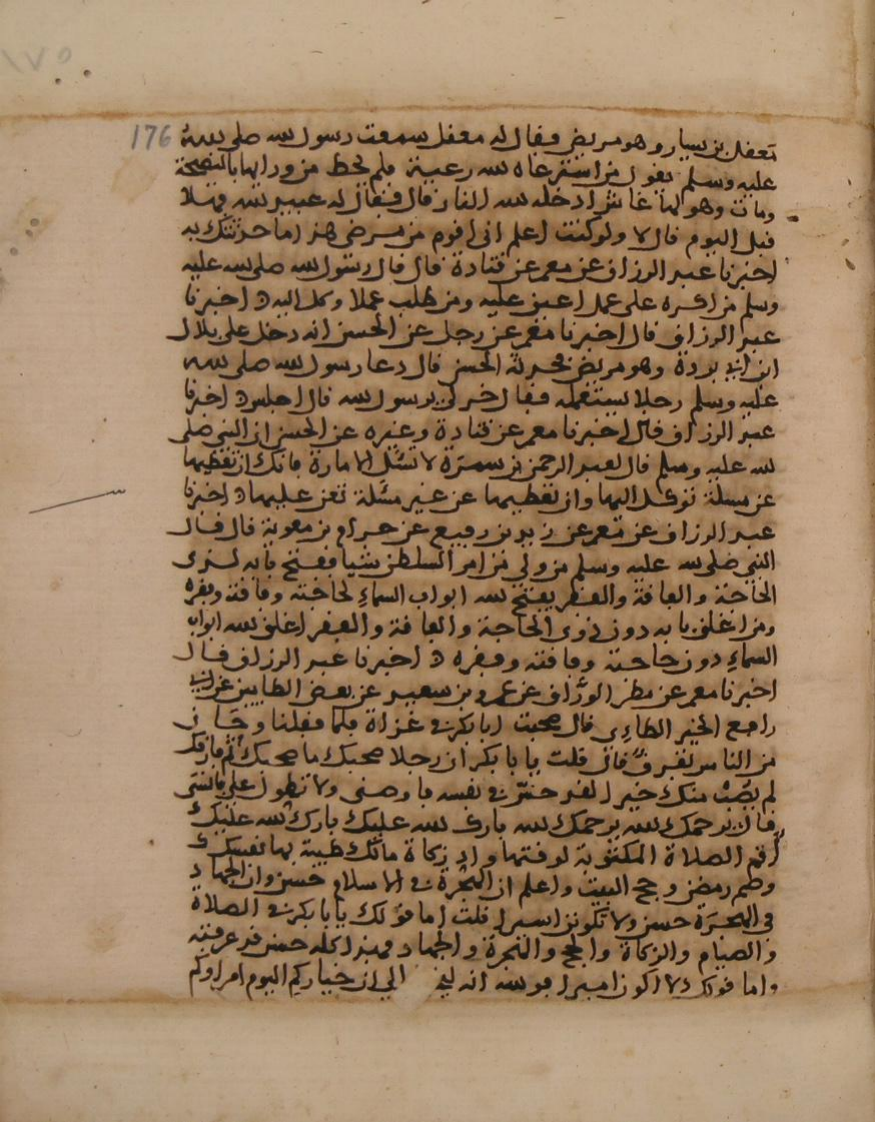 ١٧٥
176
معقل بن يسار وهو مريض فقال له معقل سمعت رسول الله صلى الله
عليه وسلم يقول من استرعاه الله رعية فلم يحط من ورائها بالنصيحة
ومات وهو لها غاش ادخله الله النار قال فقال له عبيد الله فهلا
قبل اليوم قال لا ولو كنت اعلم انى اقوم من مرضى هذا ما حدثتك به
اخبرنا عبد الرزاق عن معمر عن قتادة قال قال رسول الله صلى الله عليه
وسلم من اكره على عمل اعين عليه ومن طلب عملا وكل اليه اخبرنا
عبد الرزاق قال اخبرنا معمر عن رجل عن الحسن انه دخل على بلال
ابن ابى بردة وهو مريض فحدثه الحسن قال دعا رسول الله صلى الله
عليه وسلم رجلا يستعمله فقال خر لى يرسول الله قال اجلس اخبرنا
عبد الرزاق قال اخبرنا معمر عن قتادة وغيره عن الحسن ان النبى صلى
الله عليه وسلم قال لعبد الرحمن بن سمرة لا تسئل الامارة فانك ان تعطيها
عن مسلة توكل اليها وان تعطيها عن غير مسلة تعن عليها اخبرنا
عبد الرزاق عن معمر عن زيد بن رفيع عن حرام بن معوية قال قال
النبى صلى الله عليه وسلم من ولى من امر السلطن شيا ففتح بابه لذوى
الحاجة والفاقة والفقر يفتح الله ابواب السماء لحاجته وفاقته وفقره
ومن اغلق بابه دون ذوى الحاجة والفاقة والفقر اغلق الله ابواب
السماء دون حاجته وفاقته وفقره اخبرنا عبد الرزاق قال
اخبرنا معمر عن مطر الوراق عن عمرو بن سعيد عن بعض الطايين عن
رافع الخير الطاءى قال صحبت ابا بكر فى غزاة فلما قفلنا وحان
من الناس تفرق قال قلت يا با بكر ان رجلا صحبك ما صحبك ثم فارقك
لم يصب منك خيرا لقد فى نفسه فاوصنى ولا تطول على فانسى
قال يرحمك الله يرحمك الله بارك الله عليك بارك الله عليك
اقم الصلاة المكتوبة لوقتها واد زكاة مالك طيبة بها نفسك
وصم رمضن وحج البيت واعلم ان الهجرة فى الاسلام حسن وان الجهاد
فى الهجرة حسن ولا تكونن اميرا قلت اما قولك يا با بكر فى الصلاة
والصيام والزكاة والحج والهجرة والجهاد فهذا كله حسن قد عرفته
واما قولك لا اكون اميرا فوالله انه ليخ الى ان خياركم اليوم امراوكم